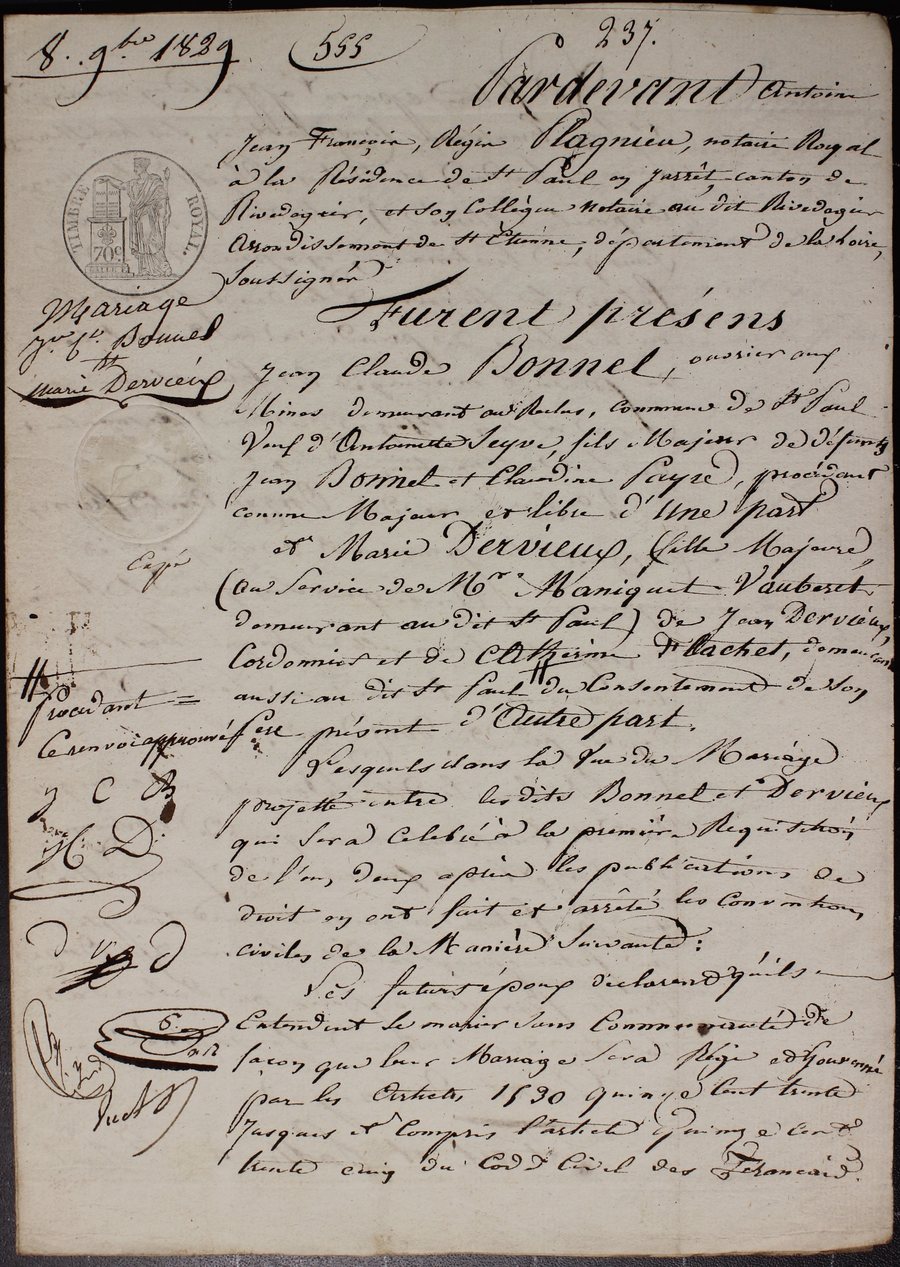 8. 9bre 1829
555
237.
Pardevant Antoine
Jean François, Régis Plagnieu, notaire Royal
à la Résidence de St Paul en Jarrêt, canton de
Rivedegier, et son Collègue notaire au dit Rivedegier
Arrondissement de St Etienne, département de la Loire,
Soussignés
TIMBRE ROYAL.
70c
Mariage
Bonnel
et
Marie Dervieux
Furent présens
Jean Claude Bonnel, ouvrier aux
Mines demeurant au Reclus, commune de St Paul
Veuf d'Antoinette Seyve, fils Majeur de défunts
Jean Bonnel et Claudine Payre, procédant
comme Majeur et libre d'une part
et Marie Dervieux, fille Majeure,
(au Service de Mr Maniquet Vauberet
demeurant au dit St Paul) de Jean Dervieux,
Cordonnier et de Catherine Flachet, demeurant
aussi au dit St Paul # du Consentement de son
Père présent d'Autre part.
# procédant =
Ce renvoi approuvé
J C B
M. D.
Lesquels dans la Vue du Mariage
projetté entre lesdits Bonnel et Dervieux
qui sera Celebré à la première Requisition
de l'un, deux après les publications de
droit en ont fait et arrêté les Conventions
civiles de la Manière Suivante:
Les futurs époux déclarent qu'ils
Entendent se marier sans Communauté de
façon que leur Mariage sera Régi et Gouverné
par les Articles 1530 quinze Cent trente
Jusques et compris l'article Quinze cent
trente cinq du Code Civil des Francais.